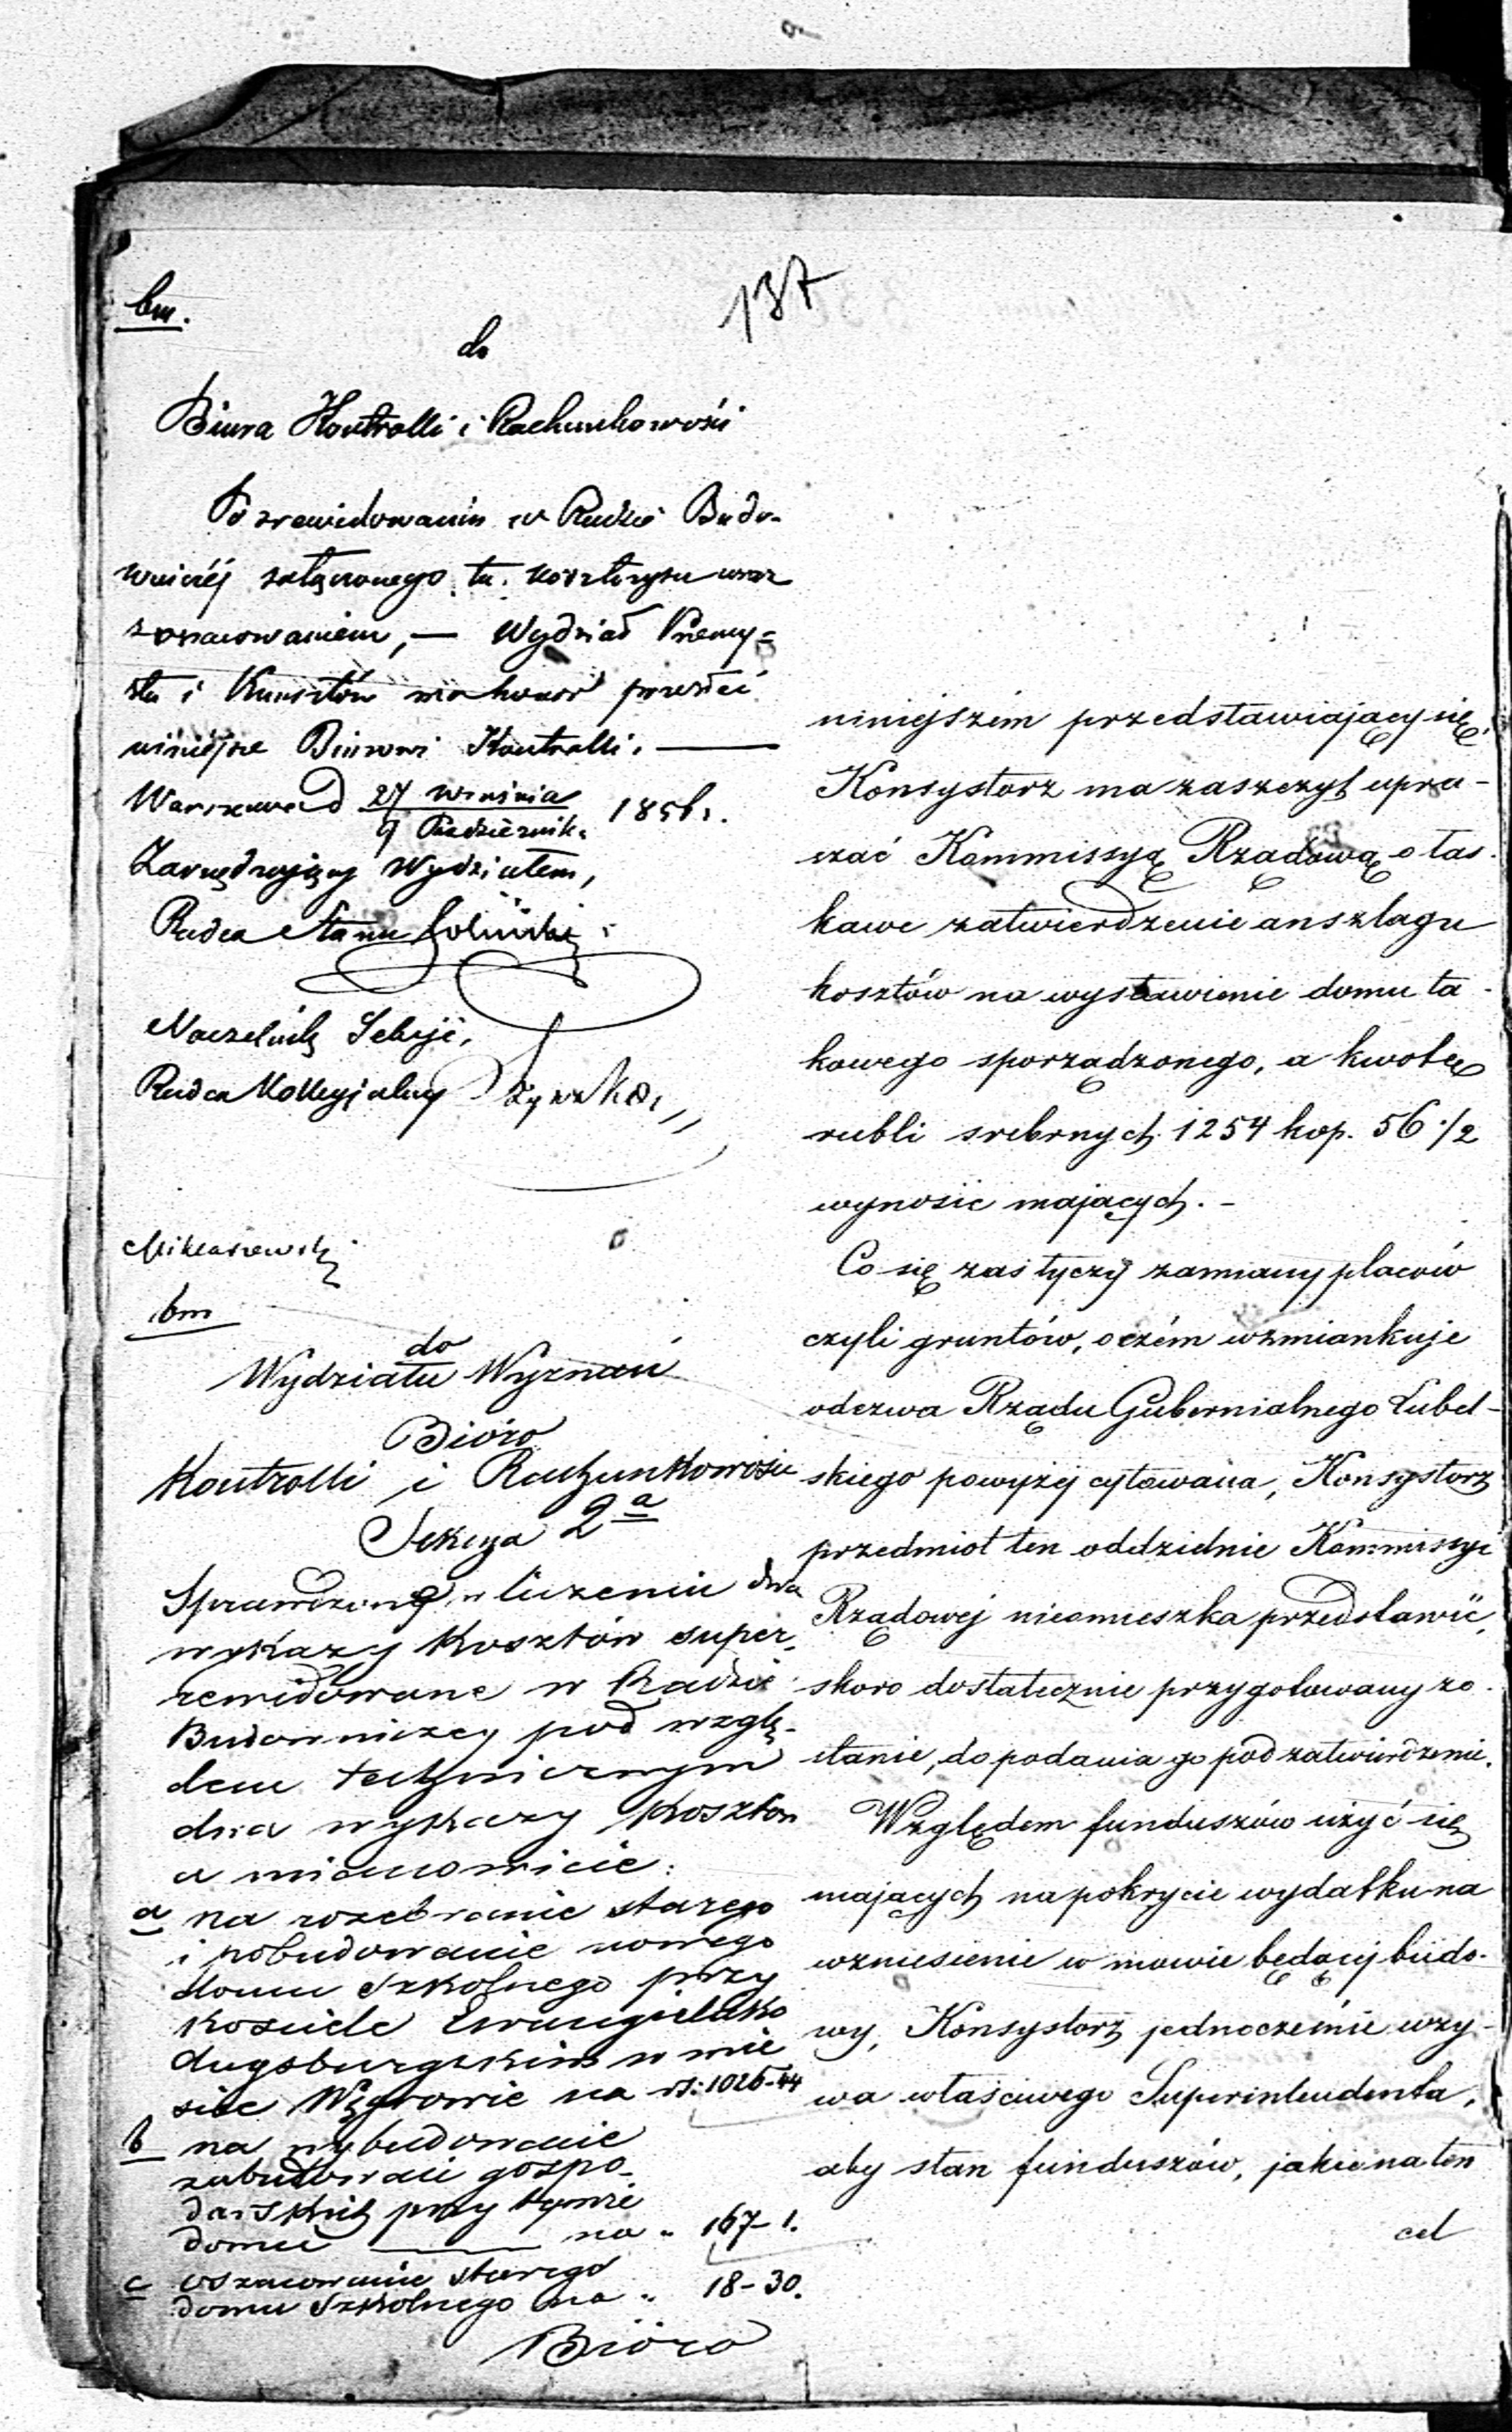 137
bm.
do
Biura Kontrolli i Rachunkowości
Po zrewidowaniu w Radzie Budo-
wniczéj załączonego tu kosztorysu wraz
z oszacowaniem, — Wydział Przemy-
słu i Kunsztów ma honor przesłać
niniejsze Biurowi Kontrolli. —
Warszawa d 27 Września / 9 Październik. 1856 r.
Zarządzający Wydziałem,
Radca Stanu
Naczelnik Sekcji,
Radca Kollegjalny
Miklaszewski
bm
do
Wydziału Wyznań
Bióro
Kontrolli i Rachunkowości
Sekcya 2a
Sprawdzone w liczeniu dwa
wykazy kosztów super-
rewidowane w Radzie
Budowniczey pod wzglę-
dem technicznym
dwa wykazy kosztow
a mianowicie:
a na rozebranie starego
i pobudowanie nowego
domu szkolnego przy
kosciele Ewangielicko
Augsburgskim w mie
scie Węgrowie na rs: 1026-44
b na wybudowanie
zabudowań gospo-
darskich przy tymże
domu — na " 167-1.
c oszacowanie starego
domu szkolnego na " 18-30.
Bióro
niniejszém przedstawiający się,
Konsystorz ma zaszczyt upra-
szać Kommissyą Rządową o łas-
kawe zatwierdzenie anszlagu
kosztów na wystawienie domu ta-
kowego sporządzonego, a kwotę
rubli srebrnych 1254 kop. 56 1/2
wynosić mających. -
Co się zaś tyczy zamiany placów
czyli gruntów, o czém wzmiankuje
odezwa Rządu Gubernialnego Lubel-
skiego powyżej cytowana, Konsystorz
przedmiot ten oddzielnie Kommissyi
Rządowej nieomieszka przedstawić,
skoro dostatecznie przygotowany zo-
stanie, do podania go pod zatwierdzenie.
Względem funduszów użyć się
mających na pokrycie wydatku na
wzniesienie w mowie będącej budo-
wy, Konsystorz jednocześnie wzy-
wa właściwego Superintendenta,
aby stan funduszów, jakie na ten
cel